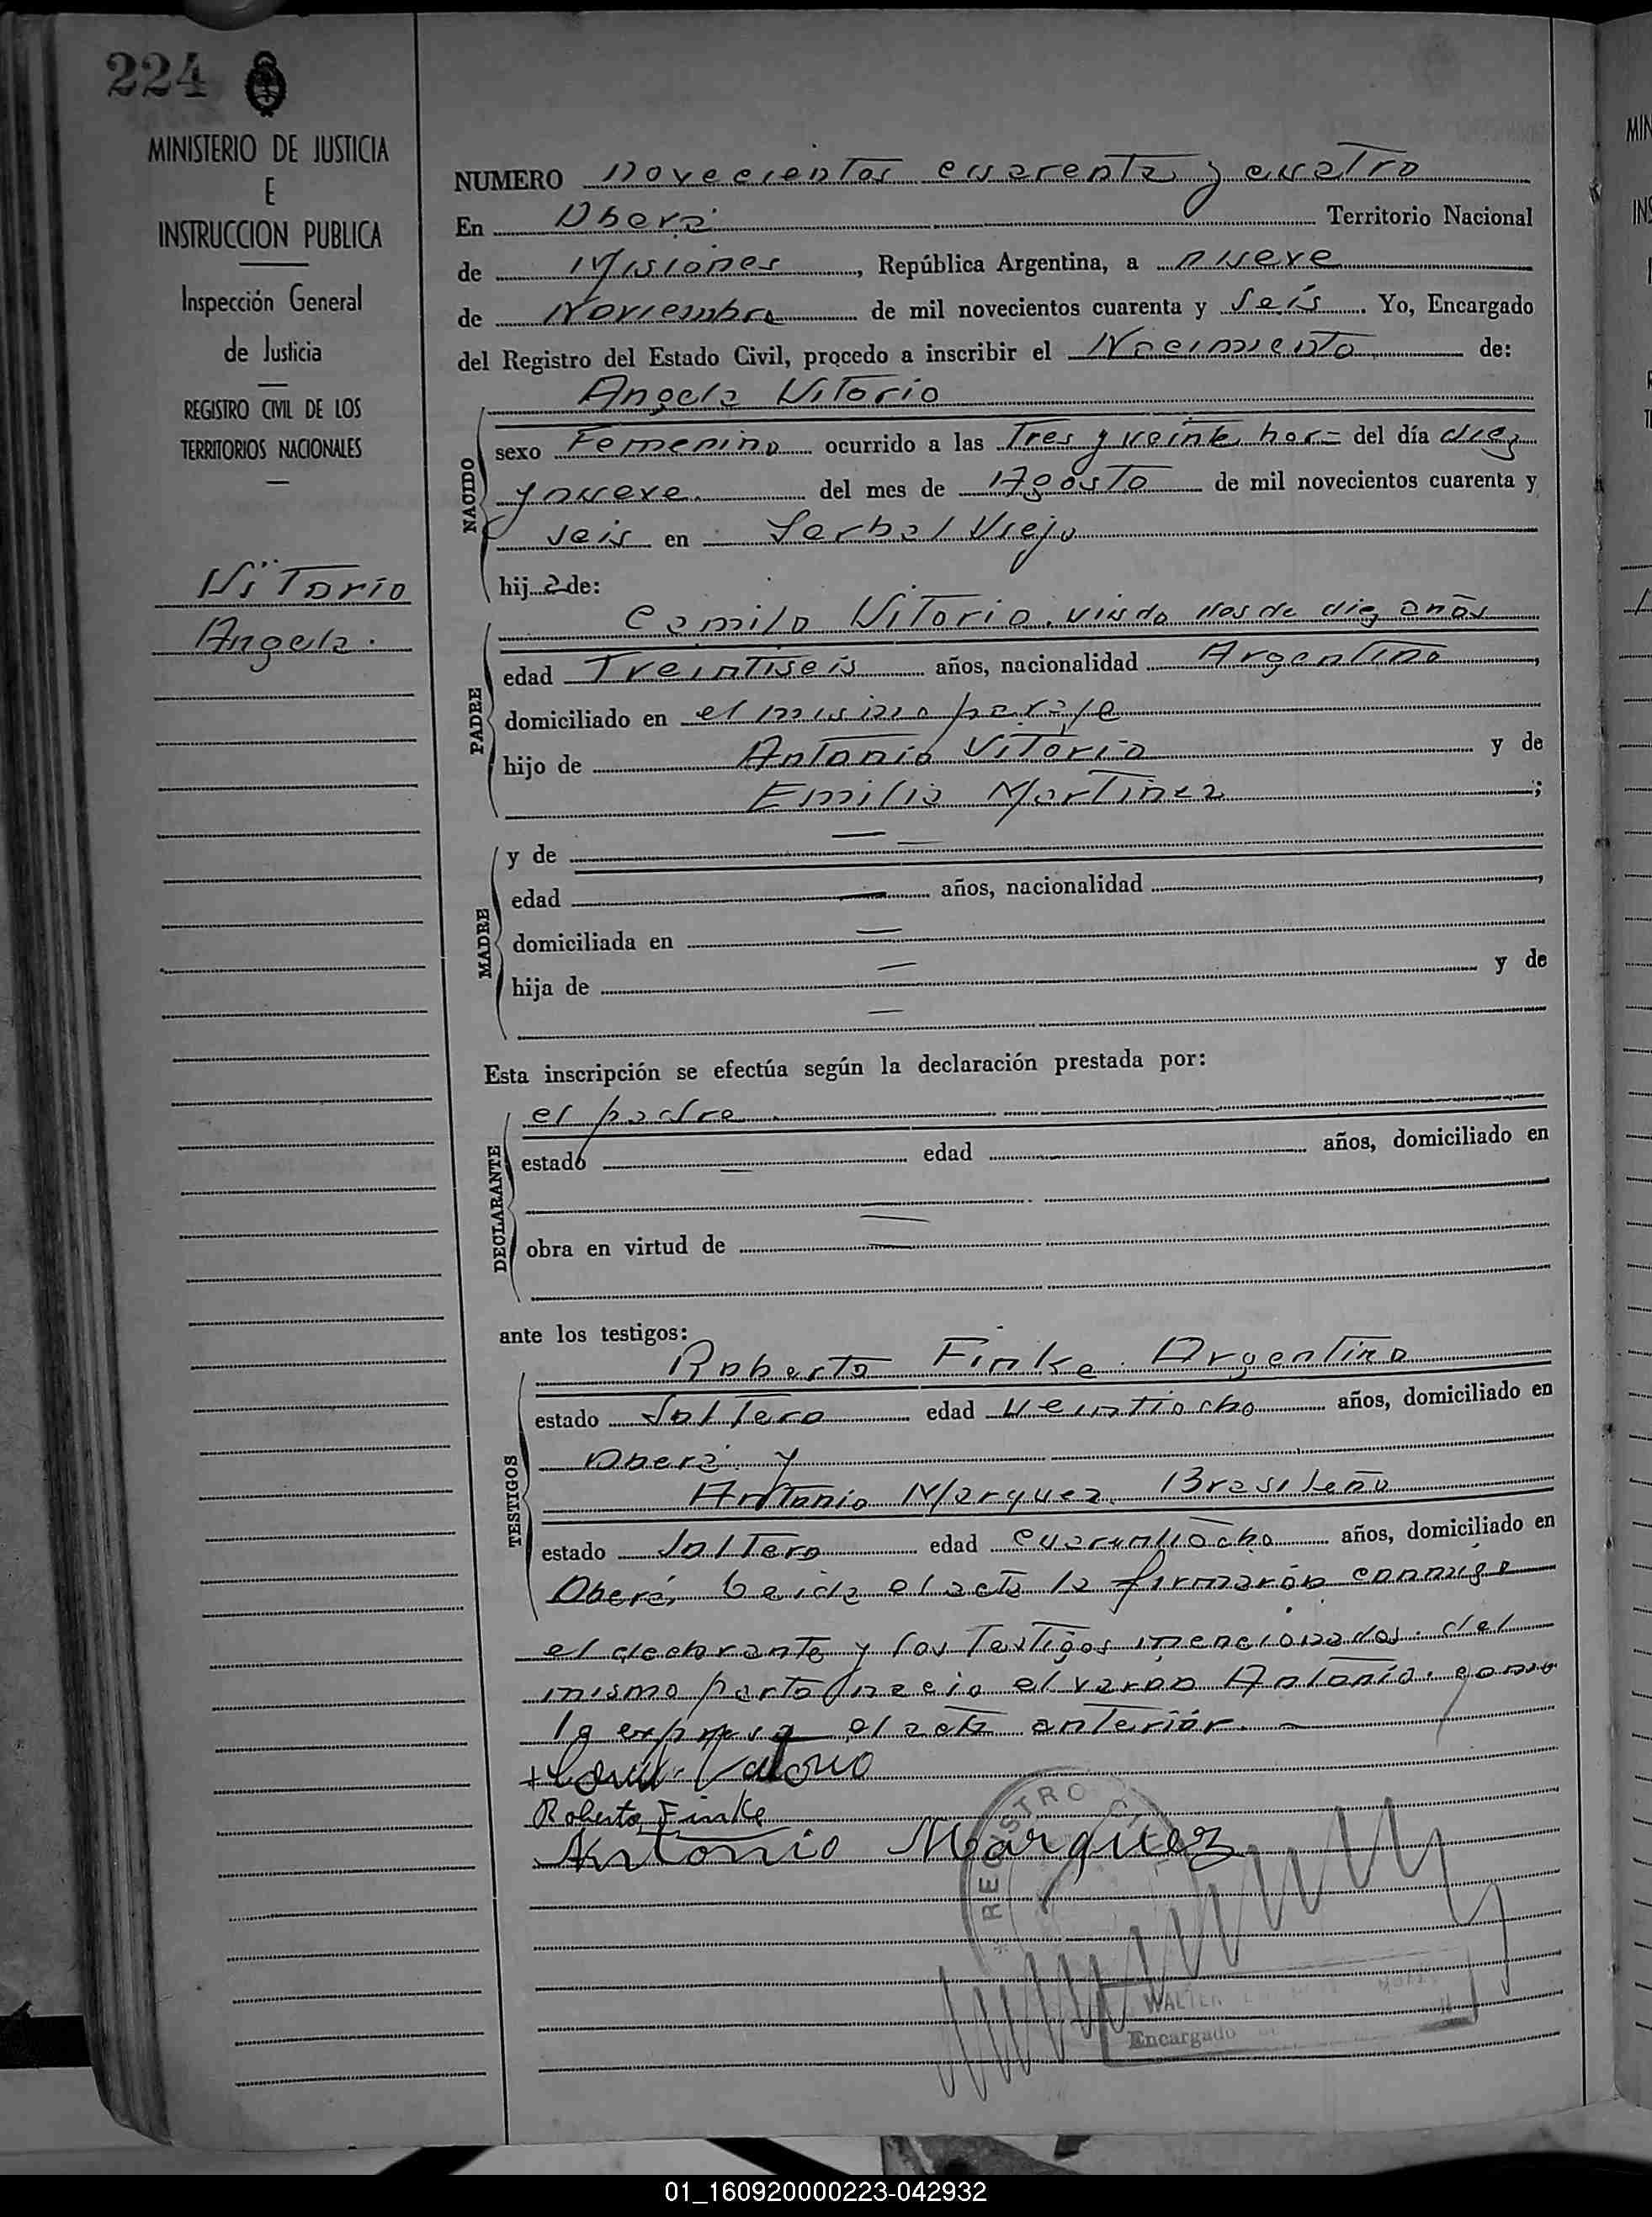 224
MINISTERIO DE JUSTICIA
E
INSTRUCCION PUBLICA
Inspección General
de Justicia
REGISTRO CIVIL DE LOS
TERRITORIOS NACIONALES
Vitorio
Angela.
NUMERO novecientos cuarenta y cuatro
En Oberá Territorio Nacional
de Misiones, República Argentina, a nueve
de Noviembre de mil novecientos cuarenta y seis. Yo, Encargado
del Registro del Estado Civil, procedo a inscribir el Nacimiento de:
Angela Vitorio
NACIDO
sexo Femenino ocurrido a las Tres y veinte hor= del día diez
y nueve. del mes de Agosto de mil novecientos cuarenta y
seis en Serbal Viejo
hij a de:
PADRE
Camilo Vitorio, viudo desde diez años
edad Treintiseis años, nacionalidad Argentino,
domiciliado en el mismo paraje
hijo de Antonio Vitorio y de
Emilia Martinez;
MADRE
y de
edad años, nacionalidad ,
domiciliada en
hija de y de
Esta inscripción se efectúa según la declaración prestada por:
DECLARANTE
el padre.
estado edad años, domiciliado en
obra en virtud de
ante los testigos:
TESTIGOS
Roberto Finke. Argentino
estado Soltero edad veintiocho años, domiciliado en
Oberá y
Antonio Marquez. Brasileño
estado Soltero edad cuarentiocho años, domiciliado en
Oberá, Leida el acta la firmarón conmigo
el declarante y los testigos mencionados. del
mismo parto nacio el varon Antonio. como
lo expresa el acta anteriór.
Vitorio
Roberto Finke
Antonio Marquez
REGISTRO
WALTER
Encargado
01_160920000223-042932